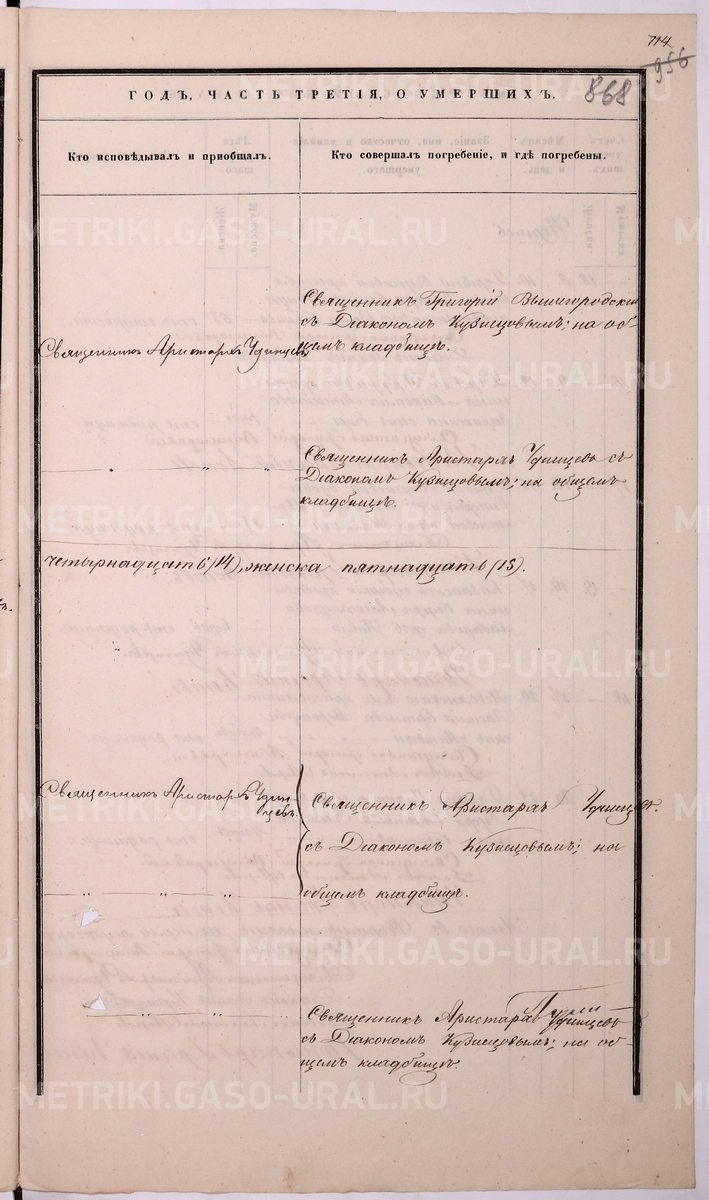 714
956
868
ГОДЪ, ЧАСТЬ ТРЕТІЯ, О УМЕРШИХЪ.
Кто исповѣдывалъ и пріобщалъ.
Кто совершалъ погребеніе, и гдѣ погребены.
Священникъ Григорій Вышегородскій
съ Діакономъ Кузнецовымъ; на об-
щемъ кладбищѣ.
Священникъ Аристархъ Удинцевъ
Священникъ Аристархъ Удинцевъ съ
Діакономъ Кузнецовымъ; на общемъ
кладбищѣ.
" " "
четырнадцать (14), женска пятнадцать (15).
Священникъ Аристархъ Удин-
цевъ.
Священникъ Аристархъ Удинцевъ.
съ Діакономъ Кузнецовымъ; на
общемъ кладбищѣ.
" " "
" " "
Священникъ Аристархъ Удинцевъ
съ Діакономъ Кузнецовымъ; на об-
щемъ кладбищѣ.
METRIKI.GASO-URAL.RU